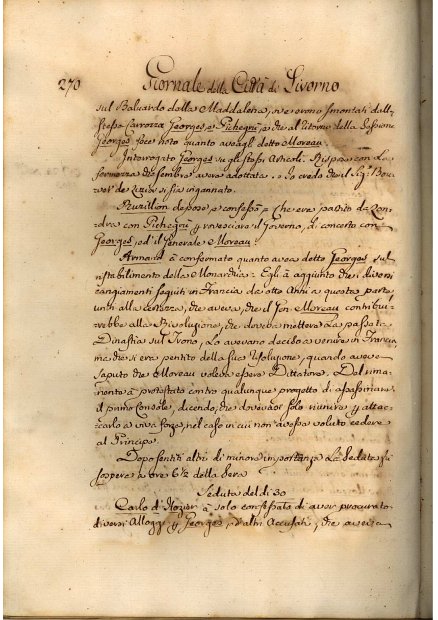 270 Giornale della Città di Livorno
sul Baluardo della Maddalena, n'erano smontati dalla
stessa Carrozza Georges, e Pichegrù, e che al ritorno della Sessione
Georges fece noto quanto aveagli detto Moreau
Interrogato Georges su gli stessi Articoli. Rispose con la
fermezza che sembra avere adottata. Io credo che il Sig.r Bou
vet de Lozier si sia ingannato.
Ruzillion depose, e confessò, che era partito da Lon
dra con Pichegrù rovesciare il Governo, di concerto con
Georges, ed il Generale Moreau
Armand à confermato quanto avea detto Georges sul
ristabilimento della Monarchia. Egli à aggiunto che i diversi
cangiamenti seguiti in Francia da otto Anni a questa parte
uniti alla certezza, che aveva, che il Gen. Moreau contribui
rebbe alla Rivoluzione, che doveva mettere la passata
Dinastia sul Trono, lo avevano deciso a venire in Francia
ma che si era pentito della sua risoluzione, quando aveva
saputo che Moreau voleva essere Dittatore. Del rima
nente à protestato contro qualunque progetto di assassinare
il primo Console, dicendo, che dovevasi solo riunire, e attac
carlo a viva forza, nel caso in cui non avesse voluto cedere
al Principe.
Dopo sentiti altri di minore importanza la Seduta fu
sospesa a ore 6½ della Sera
Seduta del dì 30
Carlo d'Hozier à solo confessato di aver procurato
diversi Alloggi Georges, ed altri Accusati, che aveva